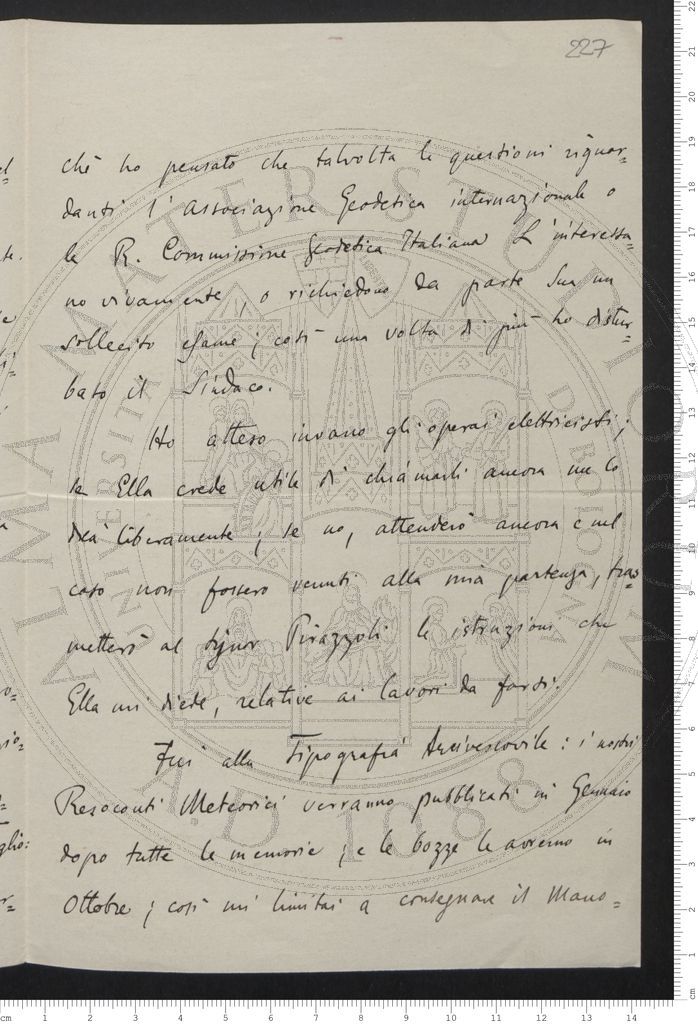 227
chè ho pensato che talvolta le questioni riguar=
danti l'Associazione Geodetica internazionale o
la R. Commissione Geodetica Italiana L'interessa=
no vivamente, o richiedono da parte Sua un
sollecito esame; così una volta di più ho distur=
bato il Sindaco.
Ho atteso invano gli operai elettricisti;
se Ella crede utile di chiamarli ancora me lo
dica liberamente; se no, attenderò ancora e nel
caso non fossero venuti alla mia partenza, tras=
metterò al Signor Pirazzoli le istruzioni che
Ella mi diede, relative ai lavori da farsi.
Fui alla Tipografia Arcivescovile: i nostri
Resoconti Meteorici verranno pubblicati in Gennaio
dopo tutte le memorie; e le bozze le avremo in
Ottobre; così mi limitai a consegnare il Mano=